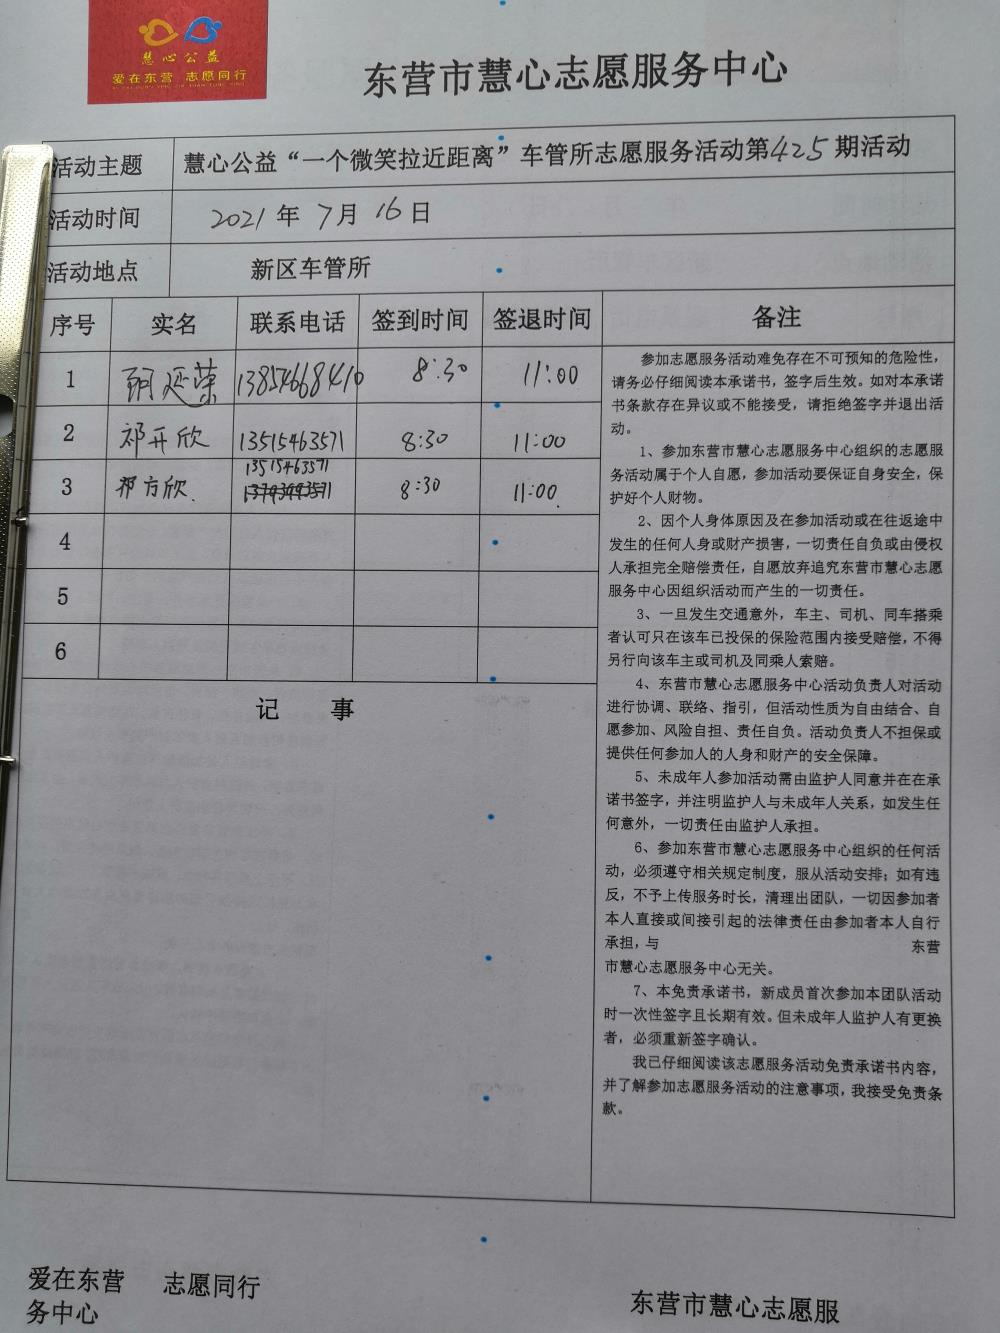 慧心公益
爱在东营 志愿同行
东营市慧心志愿服务中心
活动主题 慧心公益“一个微笑拉近距离”车管所志愿服务活动第425期活动
活动时间 2021年7月16日
活动地点 新区车管所
序号 实名 联系电话 签到时间 签退时间 备注
1 延荣 13854668410 8:30 11:00
2 祁开欣 13515463571 8:30 11:00
13515463571
3 祁方欣. 8:30 11:00.
4
5
6
记 事
参加志愿服务活动难免存在不可预知的危险性，
请务必仔细阅读本承诺书，签字后生效。如对本承诺
书条款存在异议或不能接受，请拒绝签字并退出活
动。
1、参加东营市慧心志愿服务中心组织的志愿服
务活动属于个人自愿，参加活动要保证自身安全，保
护好个人财物。
2、因个人身体原因及在参加活动或在往返途中
发生的任何人身或财产损害，一切责任自负或由侵权
人承担完全赔偿责任，自愿放弃追究东营市慧心志愿
服务中心因组织活动而产生的一切责任。
3、一旦发生交通意外，车主、司机、同车搭乘
者认可只在该车已投保的保险范围内接受赔偿，不得
另行向该车主或司机及同乘人索赔。
4、东营市慧心志愿服务中心活动负责人对活动
进行协调、联络、指引，但活动性质为自由结合、自
愿参加、风险自担、责任自负。活动负责人不担保或
提供任何参加人的人身和财产的安全保障。
5、未成年人参加活动需由监护人同意并在在承
诺书签字，并注明监护人与未成年人关系，如发生任
何意外，一切责任由监护人承担。
6、参加东营市慧心志愿服务中心组织的任何活
动，必须遵守相关规定制度，服从活动安排；如有违
反，不予上传服务时长，清理出团队，一切因参加者
本人直接或间接引起的法律责任由参加者本人自行
承担，与 东营
市慧心志愿服务中心无关。
7、本免责承诺书，新成员首次参加本团队活动
时一次性签字且长期有效。但未成年人监护人有更换
者，必须重新签字确认。
我已仔细阅读该志愿服务活动免责承诺书内容，
并了解参加志愿服务活动的注意事项，我接受免责条
款。
爱在东营 志愿同行 东营市慧心志愿服
务中心